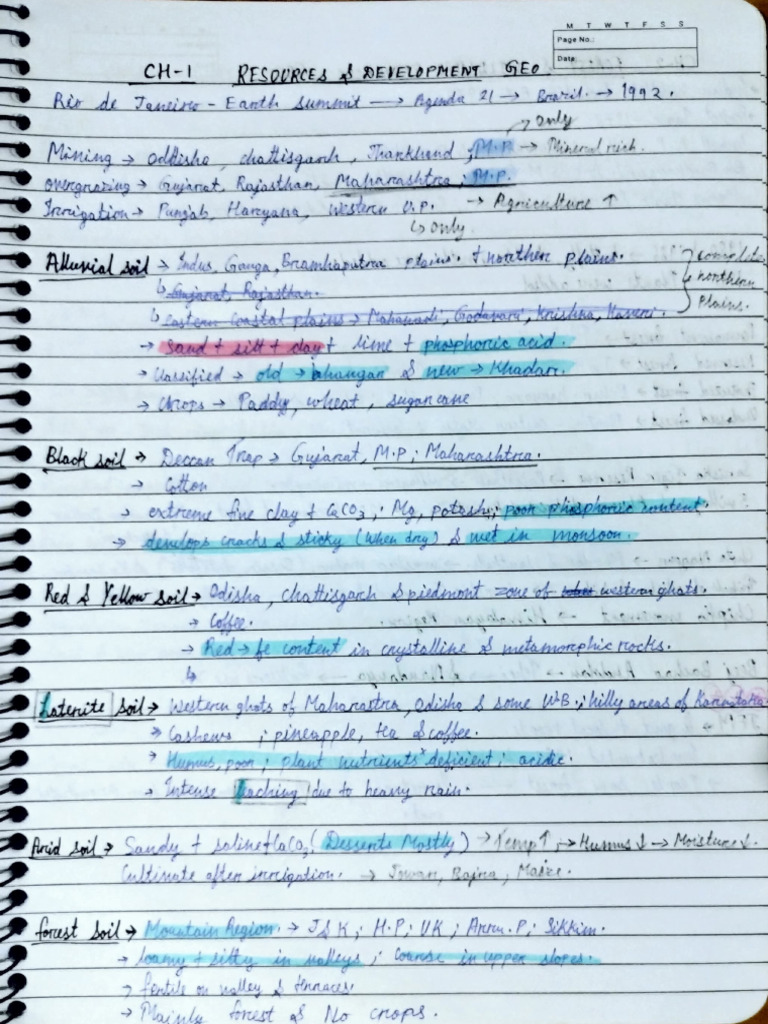 M T W T F S S
Page No.:
Date:
CH-1 RESOURCES & DEVELOPMENT GEO
Rio de Janeiro - Earth summit → Agenda 21 → Brazil → 1992.
→ Only
Mining → Oddisha, chattisgarh, Jharkhand, M.P → Mineral rich.
overgrazing → Gujarat, Rajasthan, Maharashtra; M.P.
Irrigation → Punjab, Haryana, Western U.P. → Agriculture ↑
↳ Only
Alluvial soil → Indus, Ganga, Bramhaputra plains. + northen plains.
↳ Gujarat, Rajasthan.
↳ Eastern coastal plains → Mahanadi, Godavari, Krishna, Kaveri.
complete
northern
Plains.
→ Sand + silt + clay + lime + phosphoric acid.
→ Classified → old → bhangar & new → Khadar.
→ Crops → Paddy, wheat, sugarcane
Black soil → Deccan Trap → Gujarat, M.P; Maharashtra.
→ Cotton
→ extreme fine clay + CaCO3; Mg, potash; poor phosphoric content.
→ develops cracks & sticky (when dry) & wet in monsoon.
Red & Yellow soil → Odisha, chattisgarh & piedmont zone of western ghats.
→ Coffee.
→ Red → fe content in crystalline & metamorphic rocks.
↳
Laterite soil → Western ghats of Maharastra, Odisha & some W.B.; hilly areas of Karnataka
→ Cashews; pineapple, tea & coffee.
→ Humus, poor; plant nutrients deficient; acidic.
→ Intense leaching due to heavy rain.
Arid soil → Sandy + saline + CaCO3 (Desserts Mostly) → Temp ↑; → Humus ↓ → Moisture ↓.
Cultivate after irrigation. → Jowar, Bajra, Maize.
forest soil → Mountain Region. → J&K; H.P; UK; Arru.P; Sikkim.
→ loamy + silty in valleys; coarse in upper slopes.
→ fertile on valley & terraces.
→ Mainly forest & No crops.